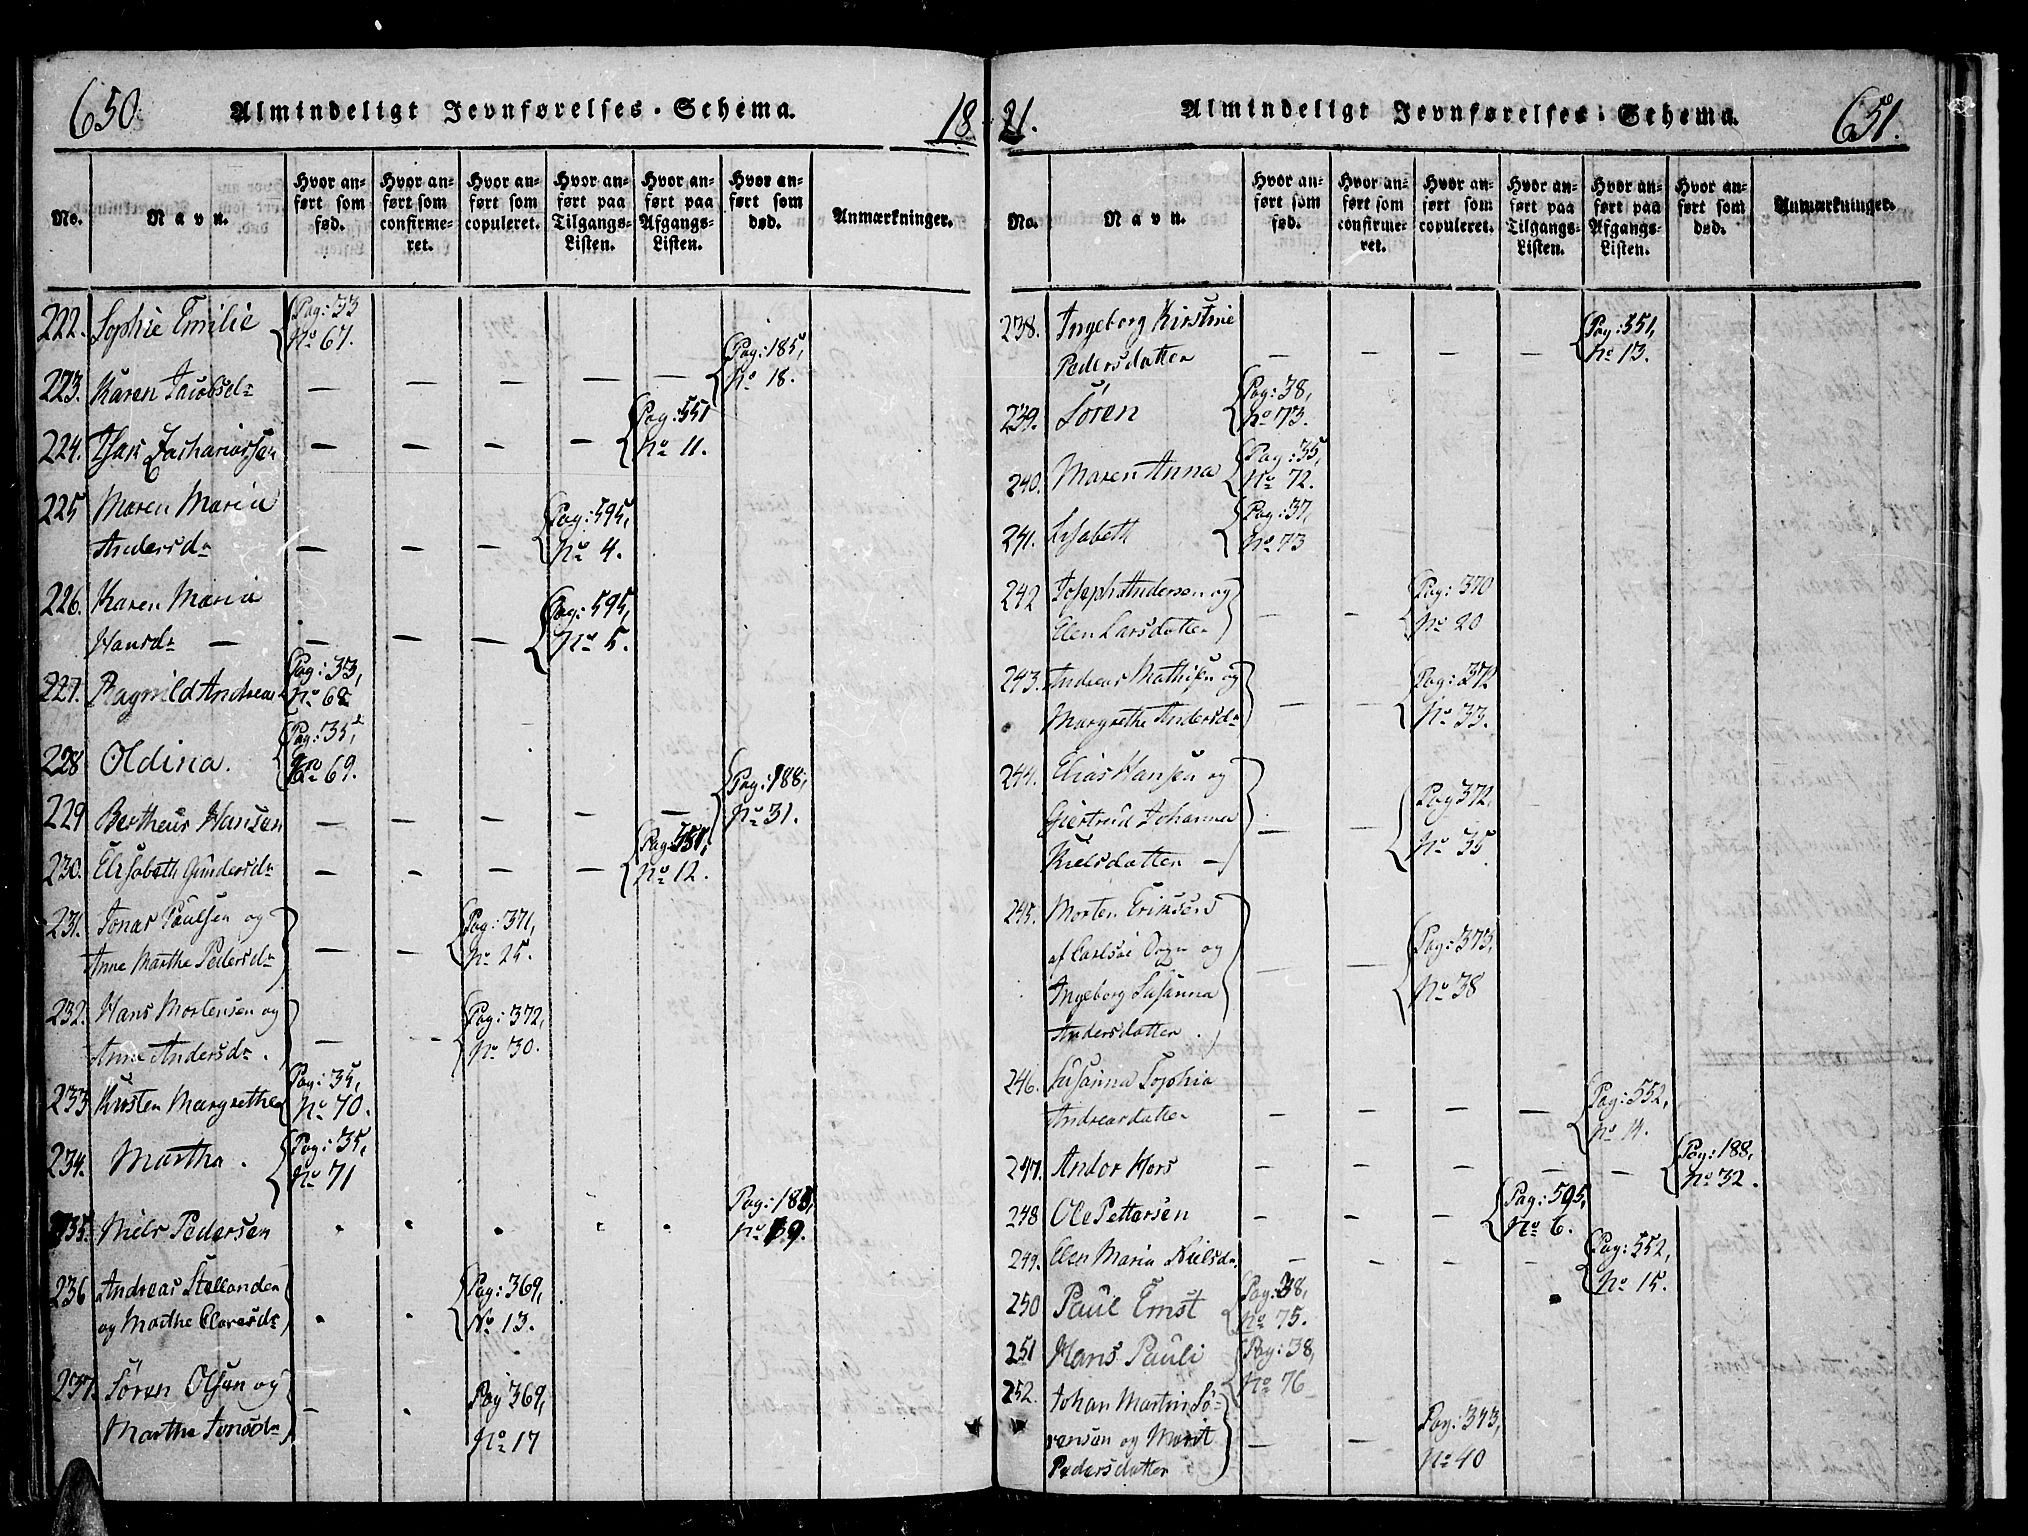 650. Almindeligt Jevnførelses-Schema. 18
No. Navn. Hvor anført som fød. Hvor anført som confirmeret. Hvor anført som copuleret. Hvor anført paa Tilgangs-Listen. Hvor anført paa Afgangs-Listen. Hvor anført som død. Anmærkninger.
222. Sophie Emilie {Pag: 33 No 67.
223. Karen Jacobsdr — — — — — {Pag: 185, No 18.
224. Isak Zachariassen — — — — {Pag: 551 No 11.
225 Maren Maria
Andersdr — — — {Pag: 595, No 4.
226. Karen Maria
Hansdr — — — — {Pag: 595, No 5.
227. Ragnild Andrea {Pag: 33, No 68
228 Oldina. {Pag: 35, No 69.
229 Bertheus Hansen — — — — — {Pag: 188, No 31.
230. Elisabeth Gundersdr — — — — {Pag: 551, No 12.
231. Jonas Paulsen og
Anne Marthe Pedersdr } — — {Pag: 371, No 25.
232. Hans Mortensen og
Anne Andersdr. } — — {Pag: 372, No 30.
233 Kirsten Margrethe {Pag: 35, No 70.
234. Martha. {Pag: 35, No 71
235. Niels Pedersen Pag: 183, No 9.
236 Andreas
og Marthe } {Pag: 369, No 13.
237. Sören Olsen og
Marthe Jonsdr } — Pag 369, No 17
21. Almindeligt Jevnførelses-Schema. 651.
No. Navn. Hvor anført som fød. Hvor anført som confirmeret. Hvor anført som copuleret. Hvor anført paa Tilgangs-Listen. Hvor anført paa Afgangs-Listen. Hvor anført som død. Anmærkninger.
238. Ingeborg Kirstine
Pedersdatter — — — — {Pag: 551, No 13.
239. Sören {Pag: 38, No 73.
240. Maren Anna {Pag: 35, No 72.
241. Lisabeth {Pag: 37, No 73
242 Joseph Andersen og
Elen Larsdatter } — — {Pag: 370 No 20
243. Andreas Mathisen og
Margrethe Andersdr } — — {Pag: 372 No 33.
244. Elias Hansen og
Giertrud Johanna
Nielsdatter — } — — {Pag 372, No 35
245. Morten Eriksen
af Carlsöe Sogn og
Ingeborg Susanna
Andersdatter. } — — {Pag: 373, No 38
246. Susanna Sophia
Andreasdatter — — — — {Pag: 552, No 14.
247. Andor Hors — — — — — {Pag: 188, No 32.
248 Ole Pettersen — — — {Pag: 595, No 6.
249. Elen Maria Nielsdr. — — — {Pag: 552, No 15.
250 Paul Ernst {Pag: 38, No 75.
251 Hans Pauli {Pag: 38, No 76
252. Johan Martin Sö-
rensen og Marit
Pedersdatter } — — Pag: 373, No 40